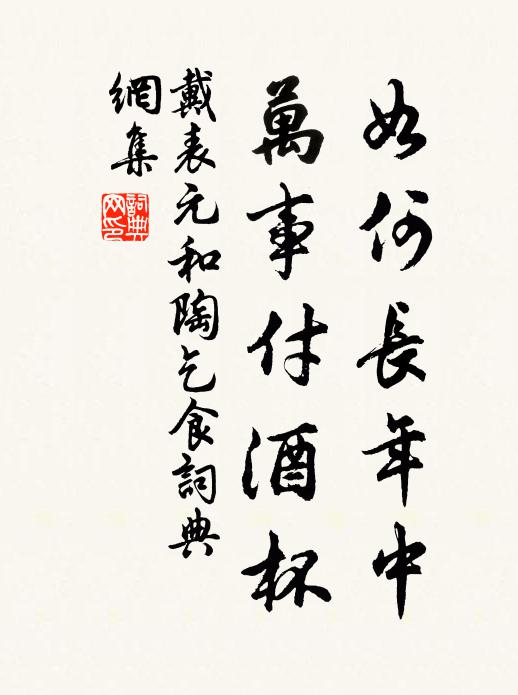 如何長年中
萬事付酒杯
戴表元和陶乞食詞典
網集
詞典网印